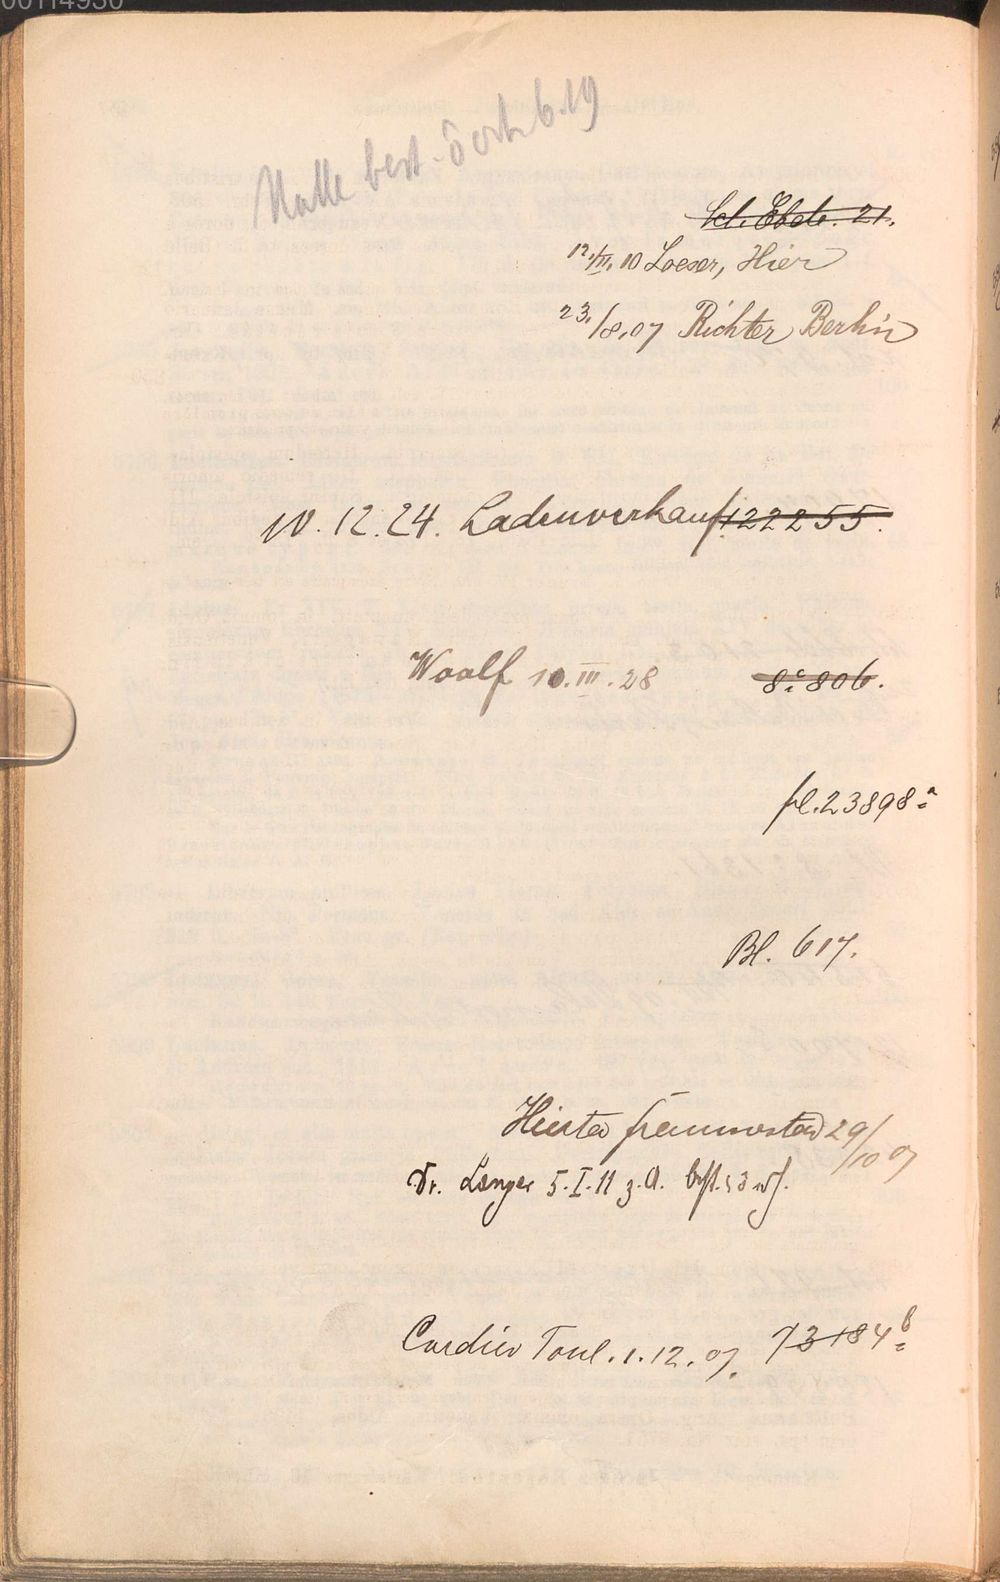 00114930
best. 6.19
Ebet. 21.
12./II. 10 Loeser, Hier
23./8.07 Richter Berlin
W. 12.24. Ladenverkauf 122255.
Woolf 10.III.28 8° 806.
fl. 23898ª
Bl. 617.
Hierta 29/10 07
Dr. Langer 5.I.11 z.A.
Cordier Toul. 1.12.07. 73184b